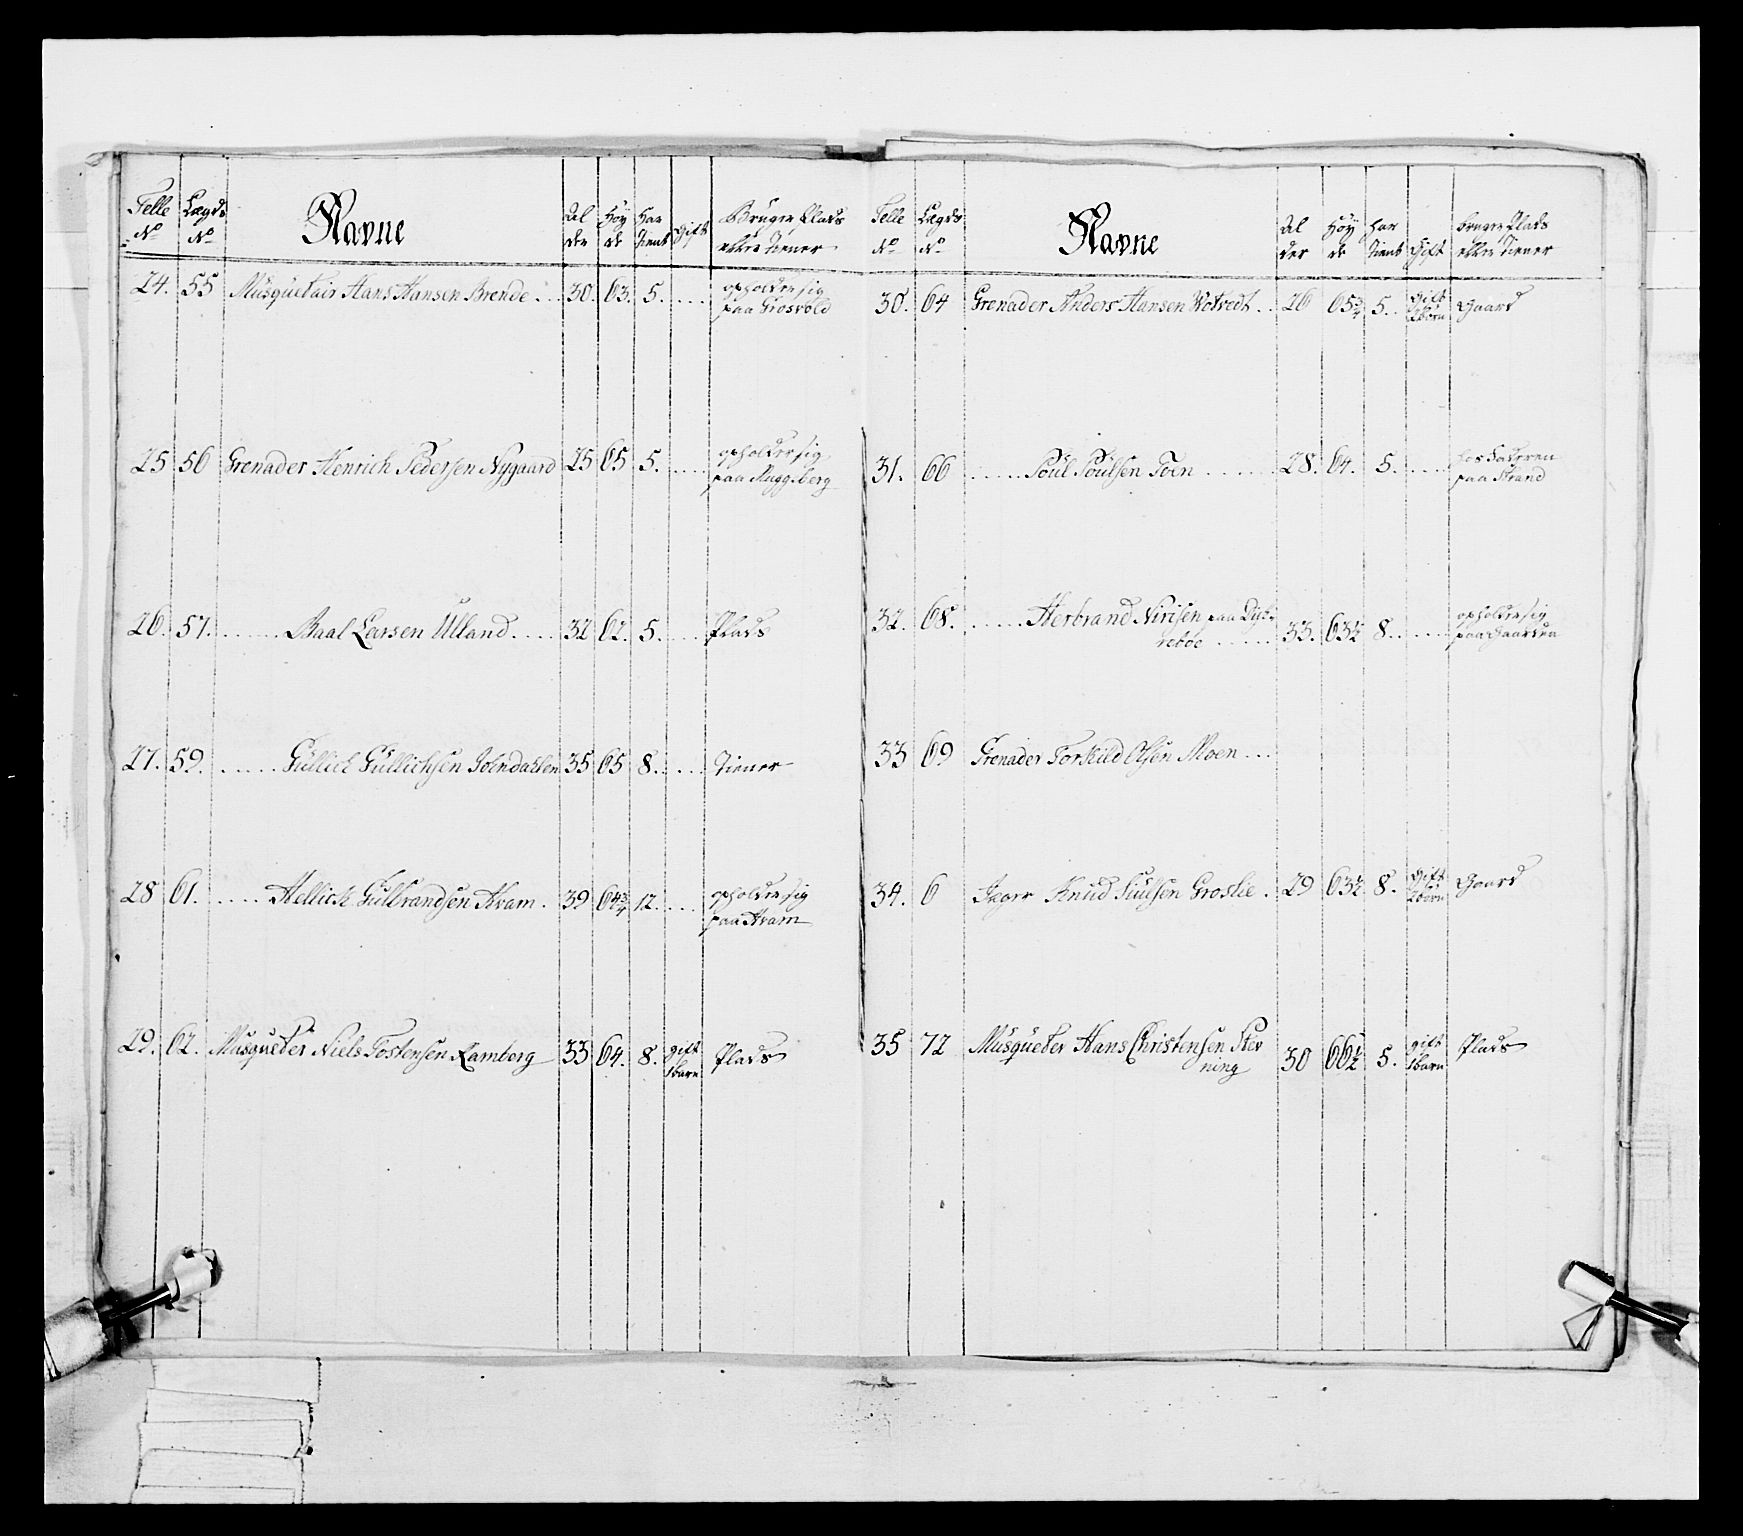 Telle No Lægds No Navne Alder Høyde Har Tient Gift Bruger Plads eller Tiener
24. 55 Musquetair Hans Hansen Brende . . . 30. 63. 5. . . . . opholder sig
paa Grosvold
25 56 Grenader Henrich Pedersen Nygaard 25 65 5. . . . . opholder sig
paa Ruggsberg
26. 57. . . . . . . Baal Larsen Ulland . . . . . 32 62. 5. . . . . Plads
27. 59. . . . . . . Gullich Gullichsen Jondahlen 35 65 8. . . . . Tiener
28 61. . . . . . Hellich Gulbrandsen Kvam . 39 64 3/4 12. . . . opholder sig
paa Kvam
29. 62. Musqueter Niels Tostensen Ramberg 33 64. 8. gift Plads
1 barn
Telle No Lægds No Navne Alder Høyde Har Tient Gift bruger Plads eller Tiener
30. 64 Grenader Anders Hansen Wotvedt . . 26 65 3/4 5. . gift Gaard
2 børn
31. 66 . . . . . . Poul Poulsen Toen . . . . . . . 28. 64. 5. . . . . . hos Faderen
paa Strand
32. 68. . . . . . . Herbrand Nirisen paa
. . . . . 33. 63 1/2 8. . . . . . opholder sig
paa Gaarden
33 69 Grenader Torkild Olsen Moen . . .
34. 6 Jeger Knud Siulsen Groslie . 29 63 1/2 8. gift Gaard
2 børn
35 72 Musqueter Hans Christensen Stev
ning 30 66 1/2 5. gift Plads
1 barn